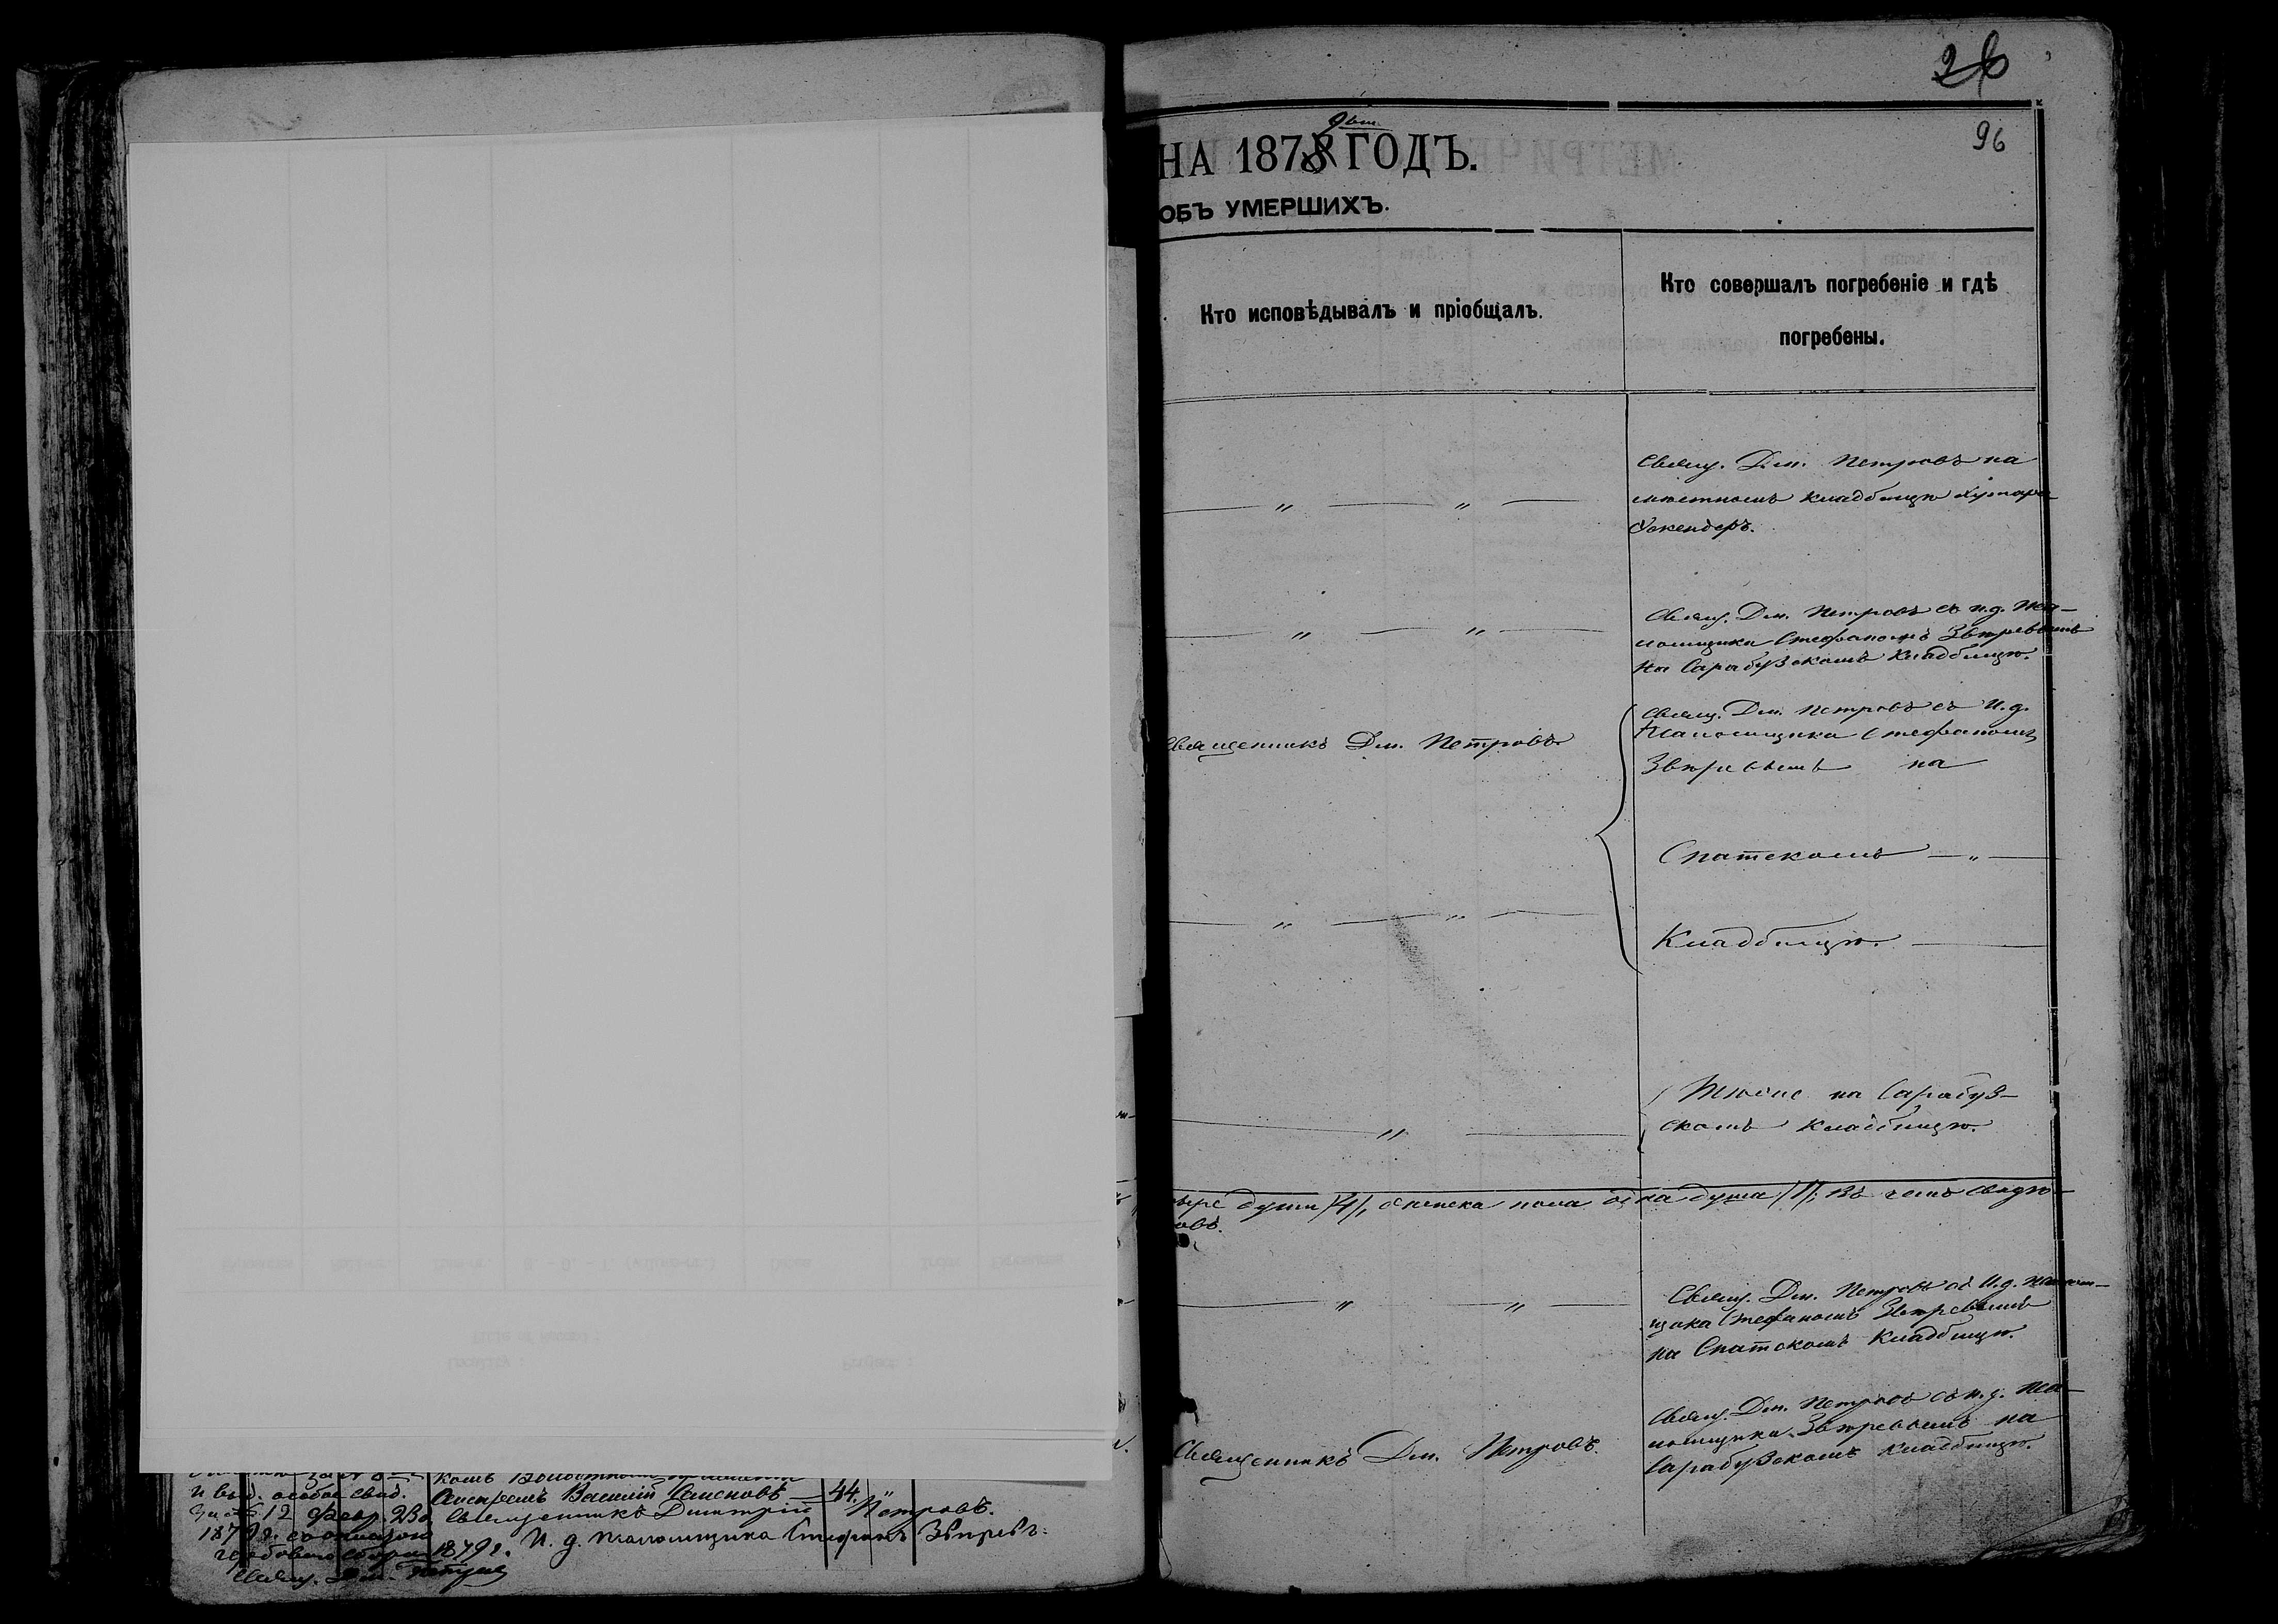 26
96
НА 1878 ГОДЪ.
9
ОБЪ УМЕРШИХЪ.
Кто исповѣдывалъ и пріобщалъ.
Кто совершалъ погребеніе и гдѣ
погребены.
Свящ. Дм. Петровъ на
мѣстномъ кладбищѣ хутора
Свящ. Дм. Петровъ съ и. д. пса-
ломщика Стефаномъ Звѣревымъ
на Сарабузскомъ кладбищѣ.
Священникъ Дм. Петровъ.
Свящ. Дм. Петровъ съ и. д.
псаломщика Стефаномъ
Звѣревымъ на
Спатскомъ — „ —
Кладбищѣ.
Тѣже на Сарабуз-
скомъ кладбищѣ.
души /4/, женска пола одна душа /1/; въ чемъ свидѣ-
Свящ. Дм. Петровъ съ и. д. псалом-
щика Стефаномъ Звѣревымъ
на Спатскомъ кладбищѣ.
Священникъ Дм. Петровъ.
Свящ. Дм. Петровъ съ и. д. пса-
ломщика Звѣревымъ на
Сарабузскомъ кладбищѣ.
комъ Волостномъ
и выд. особое свид. Василій 44. „
12 Февр. Священникъ Димитрій Петровъ.
И. д. псаломщика Стефанъ Звѣревъ.
1879 г.
Свящ. Дм. Петровъ